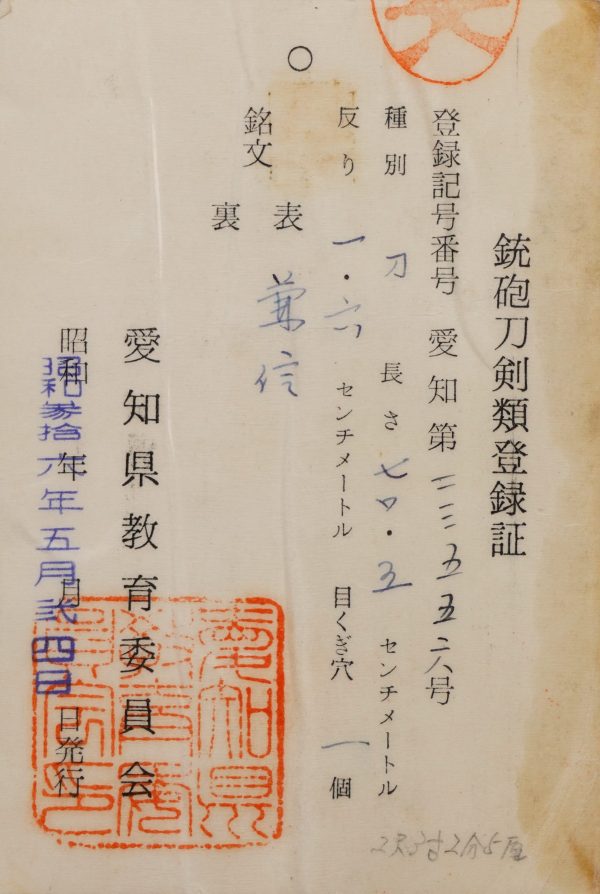 銃砲刀剣類登録証
登録記号番号 愛知第 五五 号
種別 刀 長さ 七〇・五 センチメートル
反り 一・六 センチメートル 目くぎ穴 一 個
銘文 表 兼信
裏
愛知県教育委員会
昭和 年 月 日発行
昭和参拾六年五月弐四日
2尺3寸2分5厘